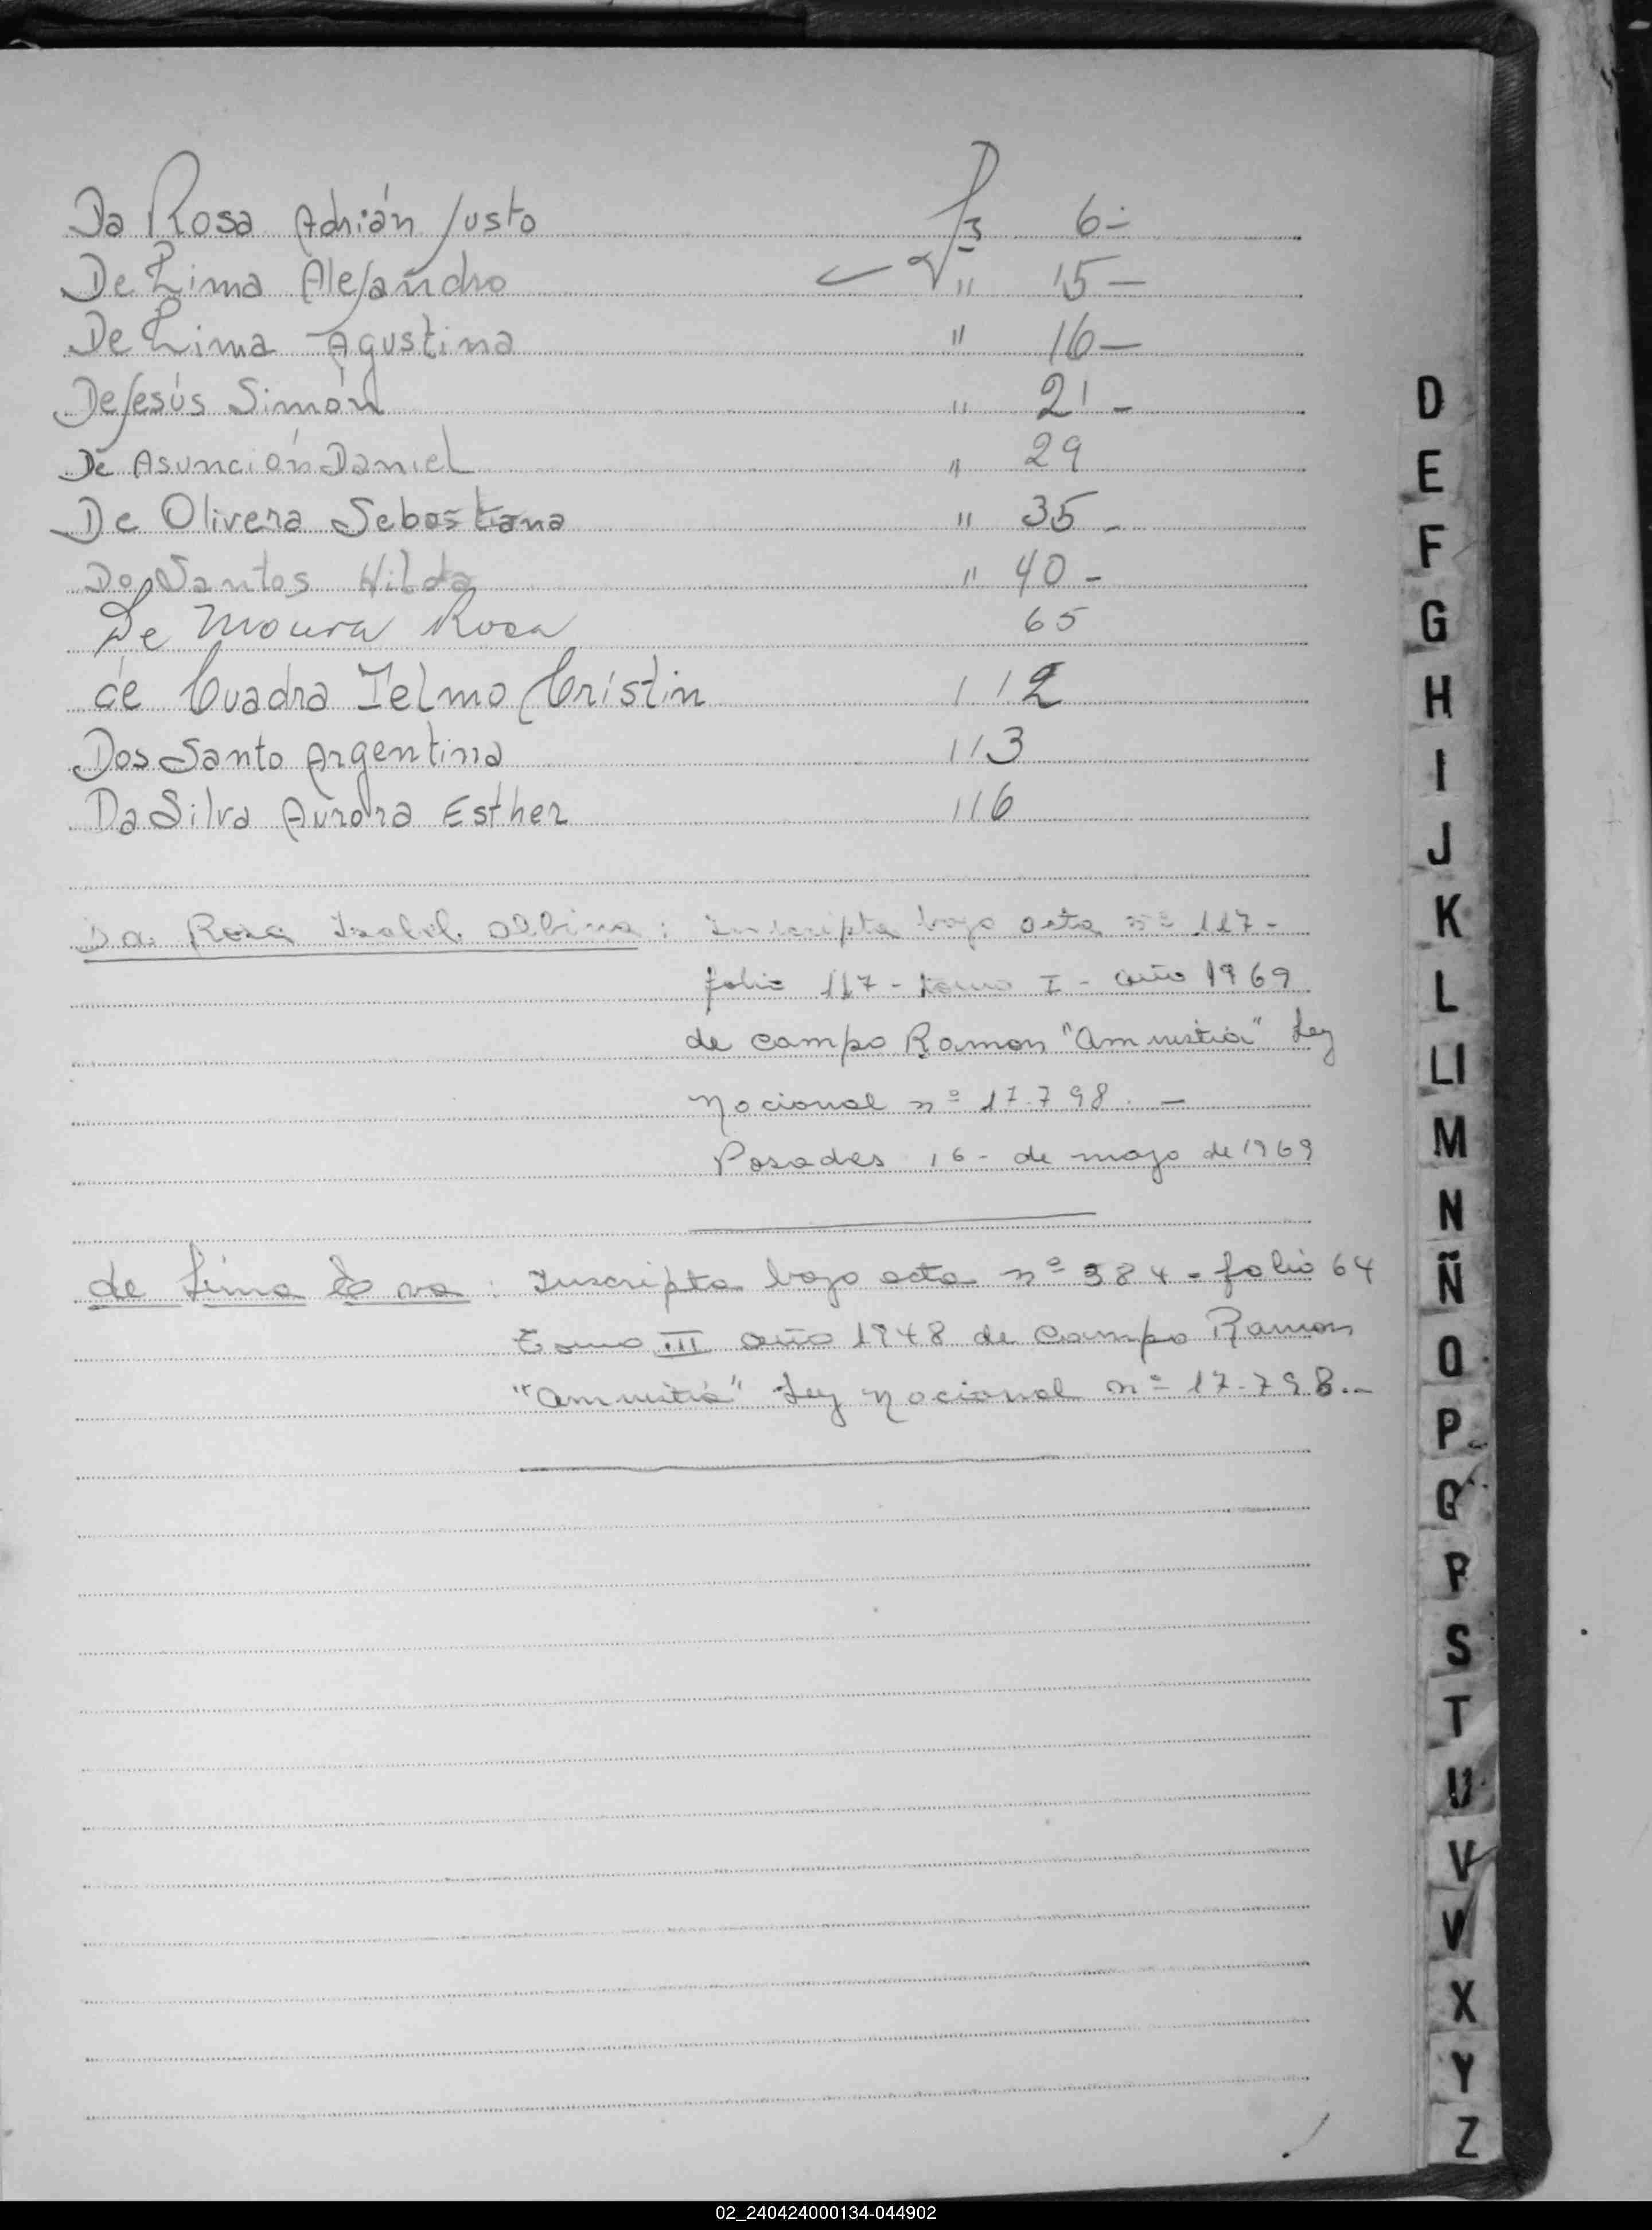 Da Rosa Adrián Justo 6-
De Lima Alejandro " 15-
De Lima Agustina " 16-
De Jesús Simón " 21-
De Asunción Daniel " 29
De Olivera Sebastiana " 35-
Dos Santos Hilda " 40-
De Moura Rosa 65
de Cuadra Telmo Cristin 112
Dos Santo Argentina 113
Da Silva Aurora Esther 116
Da Rosa Isabel Albina: Inscripta bajo acta nº 117-
folio 117- tomo I- año 1969
de campo Ramon "Amnistia" Ley
Nacional nº 17.798.-
Posadas 16- de mayo de 1969
de Lima Eva: Inscripta bajo acta nº 384- folio 64
Tomo III año 1948 de Campo Ramon
"Amnistia" Ley Nacional nº 17-798.-
D
E
F
G
H
I
J
K
L
Ll
M
N
Ñ
O
P
Q
R
S
T
U
V
W
X
Y
Z
02_240424000134-044902